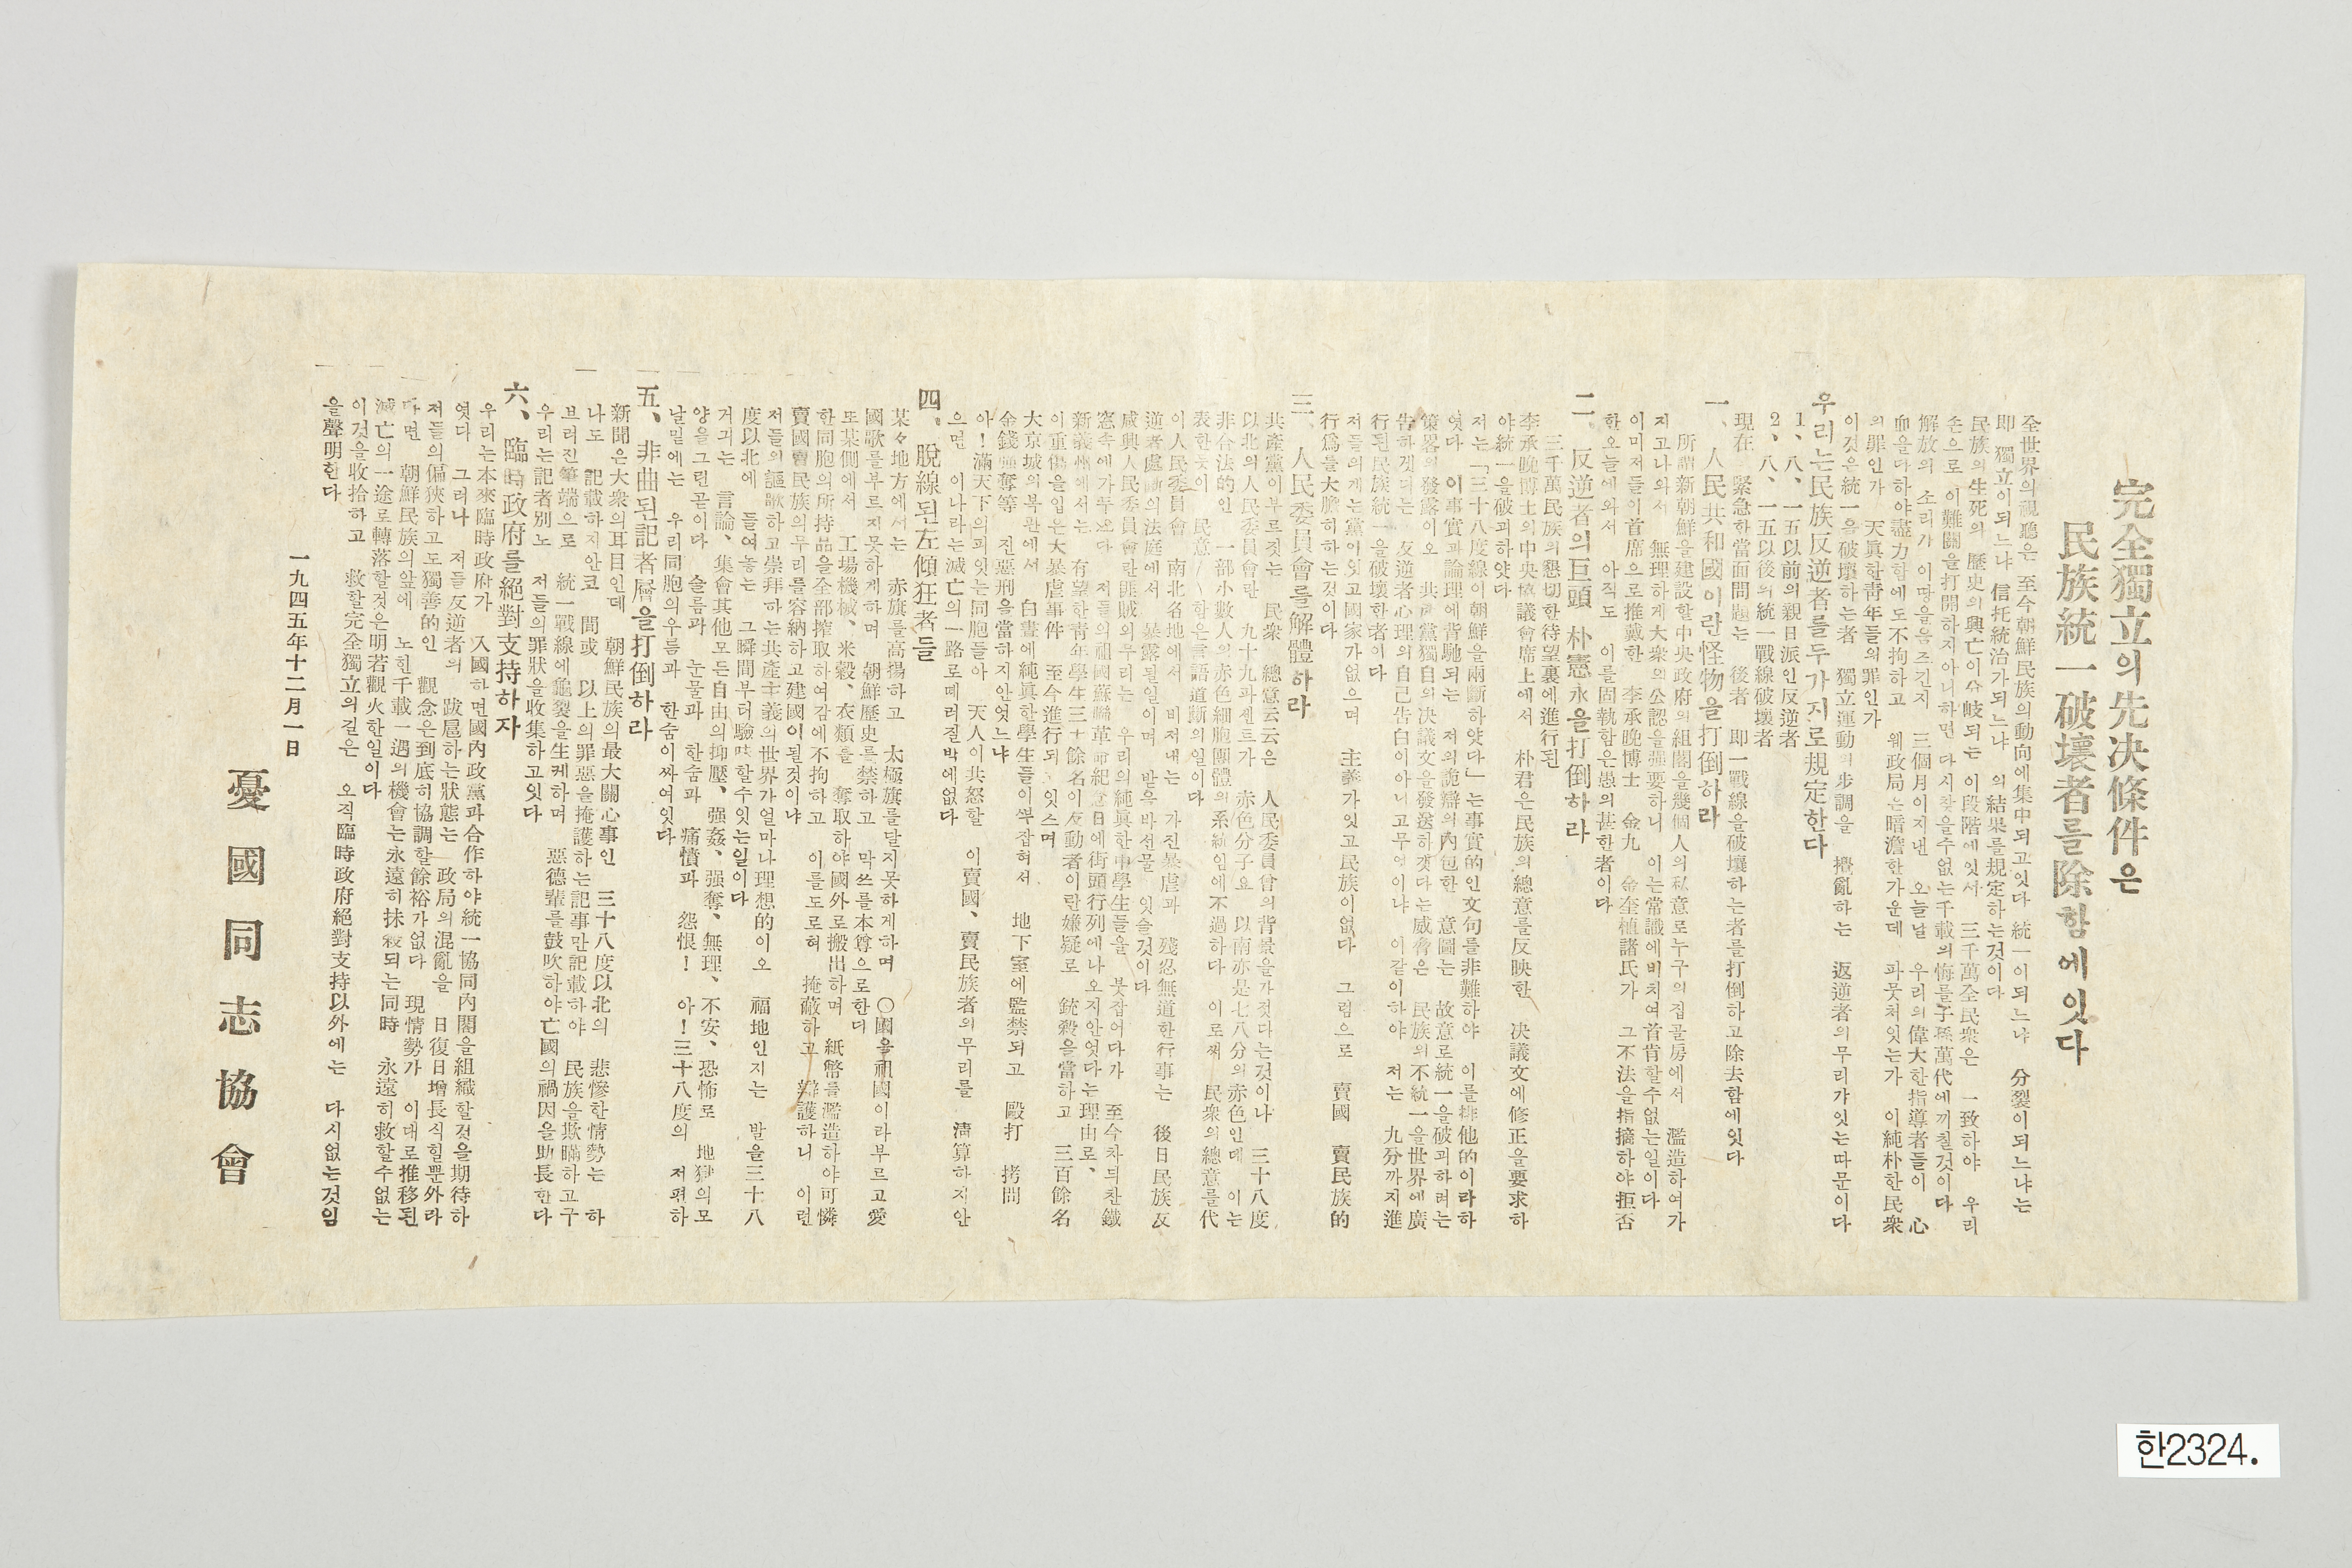 完全獨立의先決條件은
民族統一破壞者를除함에잇다
全世界의視聽은 至今朝鮮民族의動向에集中되고잇다 統一이되느냐 分裂이되느냐는
即 獨立이되느냐 信托統治가되느냐 의結果를規定하는것이다
民族의生死의 歷史의興亡이分岐되는 이段階에잇서 三千萬全民衆은 一致하야 우리
손으로 이難關을打開하지아니하면 다시찾을수없는千載의悔를子孫萬代에끼칠것이다
解放의 소리가 이땅을움즈긴지 三個月이지낸 오늘날 우리의偉大한指導者들이 心
血을다하야盡力함에도不拘하고 웨政局은暗澹한가운데 파뭇처잇는가 이純朴한民衆
의罪인가 天眞한靑年들의罪인가
이것은統一을破壞하는者 獨立運動의步調을 攪亂하는 返逆者의무리가잇는따문이다
우리는民族反逆者를두가지로規定한다
1、八、一五以前의親日派인反逆者
2、八、一五以後의統一戰線破壞者
現在 緊急한當面問題는 後者 即一戰線을破壞하는者를打倒하고除去함에잇다
一、人民共和國이란怪物을打倒하라
所謂新朝鮮을建設할中央政府의組閣을幾個人의私意로누구의집골房에서 濫造하여가
지고나와서 無理하게大衆의公認을强要하니 이는常識에비처여首肯할수없는일이다
이미저들이首席으로推戴한 李承晩博士 金九 金奎植諸氏가 그不法을指摘하야拒否
한오늘에와서 아직도 이를固執함은愚의甚한者이다
二、反逆者의巨頭 朴憲永을打倒하라
三千萬民族의懇切한待望裏에進行된
李承晩博士의中央協議會席上에서 朴君은民族의總意를反映한 決議文에修正을要求하
야統一을破괴하얏다
저는「三十八度線이朝鮮을兩斷하얏다」는事實的인文句를非難하야 이를排他的이라하
엿다 이事實과論理에背馳되는 저의詭辯의內包한 意圖는 故意로統一을破괴하려는
策畧의發露이오 共産黨獨自의決議文을發送하겟다는威脅은 民族의不統一을世界에廣
告하겟다는 反逆者心理의自己告白이아니고무엇이냐 이갈이하야 저는 九分까지進
行된民族統一을破壞한者이다
저들의게는黨이잇고國家가없으며 主義가잇고民族이없다 그럼으로 賣國 賣民族的
行爲를大膽히하는것이다
三、人民委員會를解體하라
共產黨이부르짓는 民衆 總意云云은 人民委員會의背景을가젓다는것이나 三十八度
以北의人民委員會란 九十九파센트가 赤色分子요 以南亦是七八分의赤色인데 이는
非合法的인 一部小數人의赤色細胞團體의系統임에不過하다 이로써 民衆의總意를代
表한듯이 民意 함은言語道斷의일이다
이人民委員會 南北各地에서 비저내는 가진暴虐과 殘忍無道한行事는 後日民族反
逆者處斷의法庭에서 暴露될일이며 발윽바선물 잇슬것이다
咸興人民委員會란匪賊의무리는 우리의純眞한中學生들을 붓잡어다가 至今차듸찬鐵
窓속에가두엇다 저들의祖國蘇聯革命紀念日에街頭行列에나오지안엇다는理由로、
新義州에서는 有望한靑年學生三十餘名이反動者이란嫌疑로 銃殺을當하고 三百餘名
이重傷을입은大暴虐事件 至今進行되 잇스며
大京城의복판에서 白晝에純眞한學生들이붓잡혀서 地下室에監禁되고 毆打 拷問
金錢强奪等 진惡刑을當하지안엇느냐
아!滿天下의피잇는同胞들아 天人이共怒할 이賣國、賣民族者의무리를 淸算하지안
으면 이나라는滅亡의一路로떼러질박에없다
四、脫線된左傾狂者들
某々地方에서는 赤旗를高揚하고 太極旗를달지못하게하며 〇國을祖國이라부르고愛
國歌를부르지못하게하며 朝鮮歷史를禁하고 막쓰를本尊으로한더
또某側에서 工場機械、米穀、衣類를 奪取하야國外로搬出하며 紙幣를濫造하야可憐
한同胞의所持品을全部搾取하여감에不拘하고 이를도로혀 掩蔽하고 辯護하니 이런
賣國國賣民族의무리를容納하고建國이될것이냐
저들의謳歌하고崇拜하는共產主義의世界가얼마나理想的이오 福地인지는 발을三十八
度以北에 들여놓는 그瞬間부터驗味할수잇는일이다
거긔는 言論、集會其他모든自由의抑壓、强姦、强奪、無理、不安、恐怖로 地獄의모
양을그린곧이다 슬픔과 눈물과 한숨과 痛憤과 怨恨! 아!三十八度의 저편하
날밑에는 우리同胞의우름과 한숨이싸여잇다
五、非曲된記者層을打倒하라
新聞은大衆의耳目인데 朝鮮民族의最大關心事인 三十八度以北의 悲慘한情勢는 하
나도 記載하지안코 間或 以上의罪惡을掩護하는記事만記載하야 民族을欺瞞하고구
브러진筆端으로 統一戰線에龜裂을生케하며 惡德輩를鼓吹하야亡國의禍因을助長한다
우리는記者別노 저들의罪狀을收集하고잇다
六、臨時政府를絕對支持하자
우리는本來臨時政府가 入國하면國內政黨과合作하야統一協同內閣을組織할것을期待하
엿다 그러나 저들反逆者의 跋扈하는狀態는 政局의混亂을 日復日增長식힐뿐外라
저들의偏狹하고도獨善的인 觀念은到底히協調할餘裕가없다 現情勢가 이대로推移된
다면 朝鮮民族의앞에 노힌千載一遇의機會는永遠히抹殺되는同時 永遠히救할수없는
滅亡의一途로轉落할것은明若觀火한일이다
이것을收拾하고 救할完全獨立의길은 오직臨時政府絕對支持以外에는 다시없는것임
을聲明한다
一九四五年十二月一日
憂國同志協會
한2324.